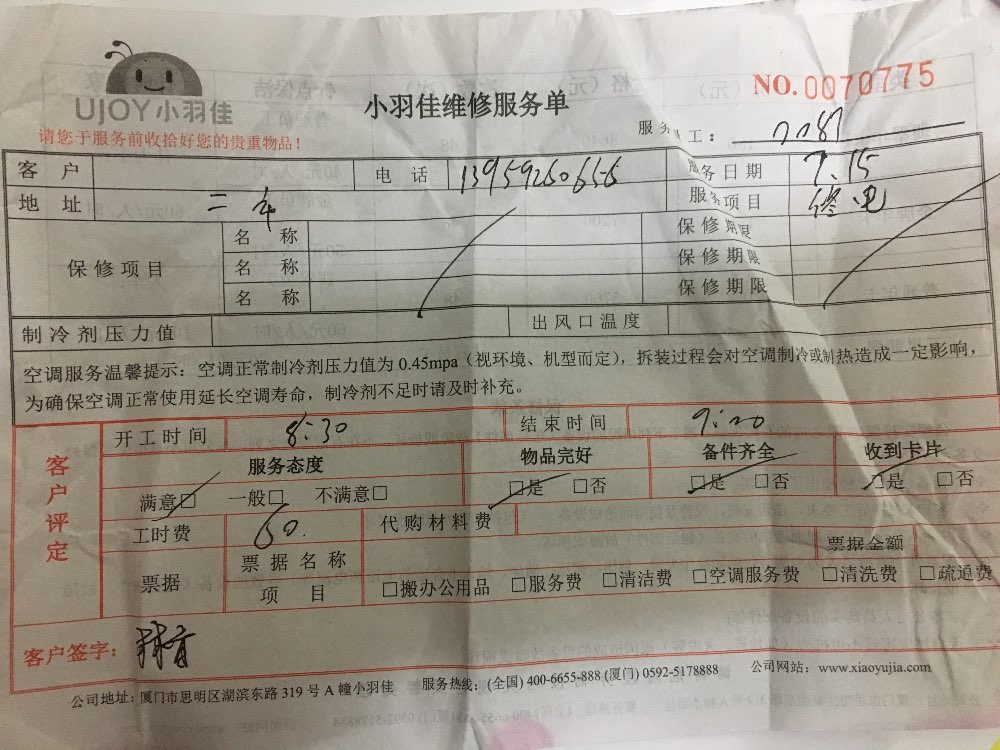 UJOY小羽佳
小羽佳维修服务单
NO.0070775
请您于服务前收拾好您的贵重物品！
服务员工：
客户 电话 13959260656 服务日期 7.15
地址 二 服务项目 修电
保修项目 名称 保修期限
名称 保修期限
名称 保修期限
制冷剂压力值 出风口温度
空调服务温馨提示：空调正常制冷剂压力值为 0.45mpa（视环境、机型而定），拆装过程会对空调制冷或制热造成一定影响，
为确保空调正常使用延长空调寿命，制冷剂不足时请及时补充。
客户评定
开工时间 8:30 结束时间 9:20
服务态度 物品完好 备件齐全 收到卡片
满意□ 一般□ 不满意□ □是 □否 □是 □否 □是 □否
工时费 60. 代购材料费
票据 票据名称 票据金额
项目 □搬办公用品 □服务费 □清洁费 □空调服务费 □清洗费 □疏通费
客户签字：
公司地址：厦门市思明区湖滨东路 319 号 A 幢小羽佳 服务热线：(全国) 400-6655-888 (厦门) 0592-5178888 公司网站：www.xiaoyujia.com